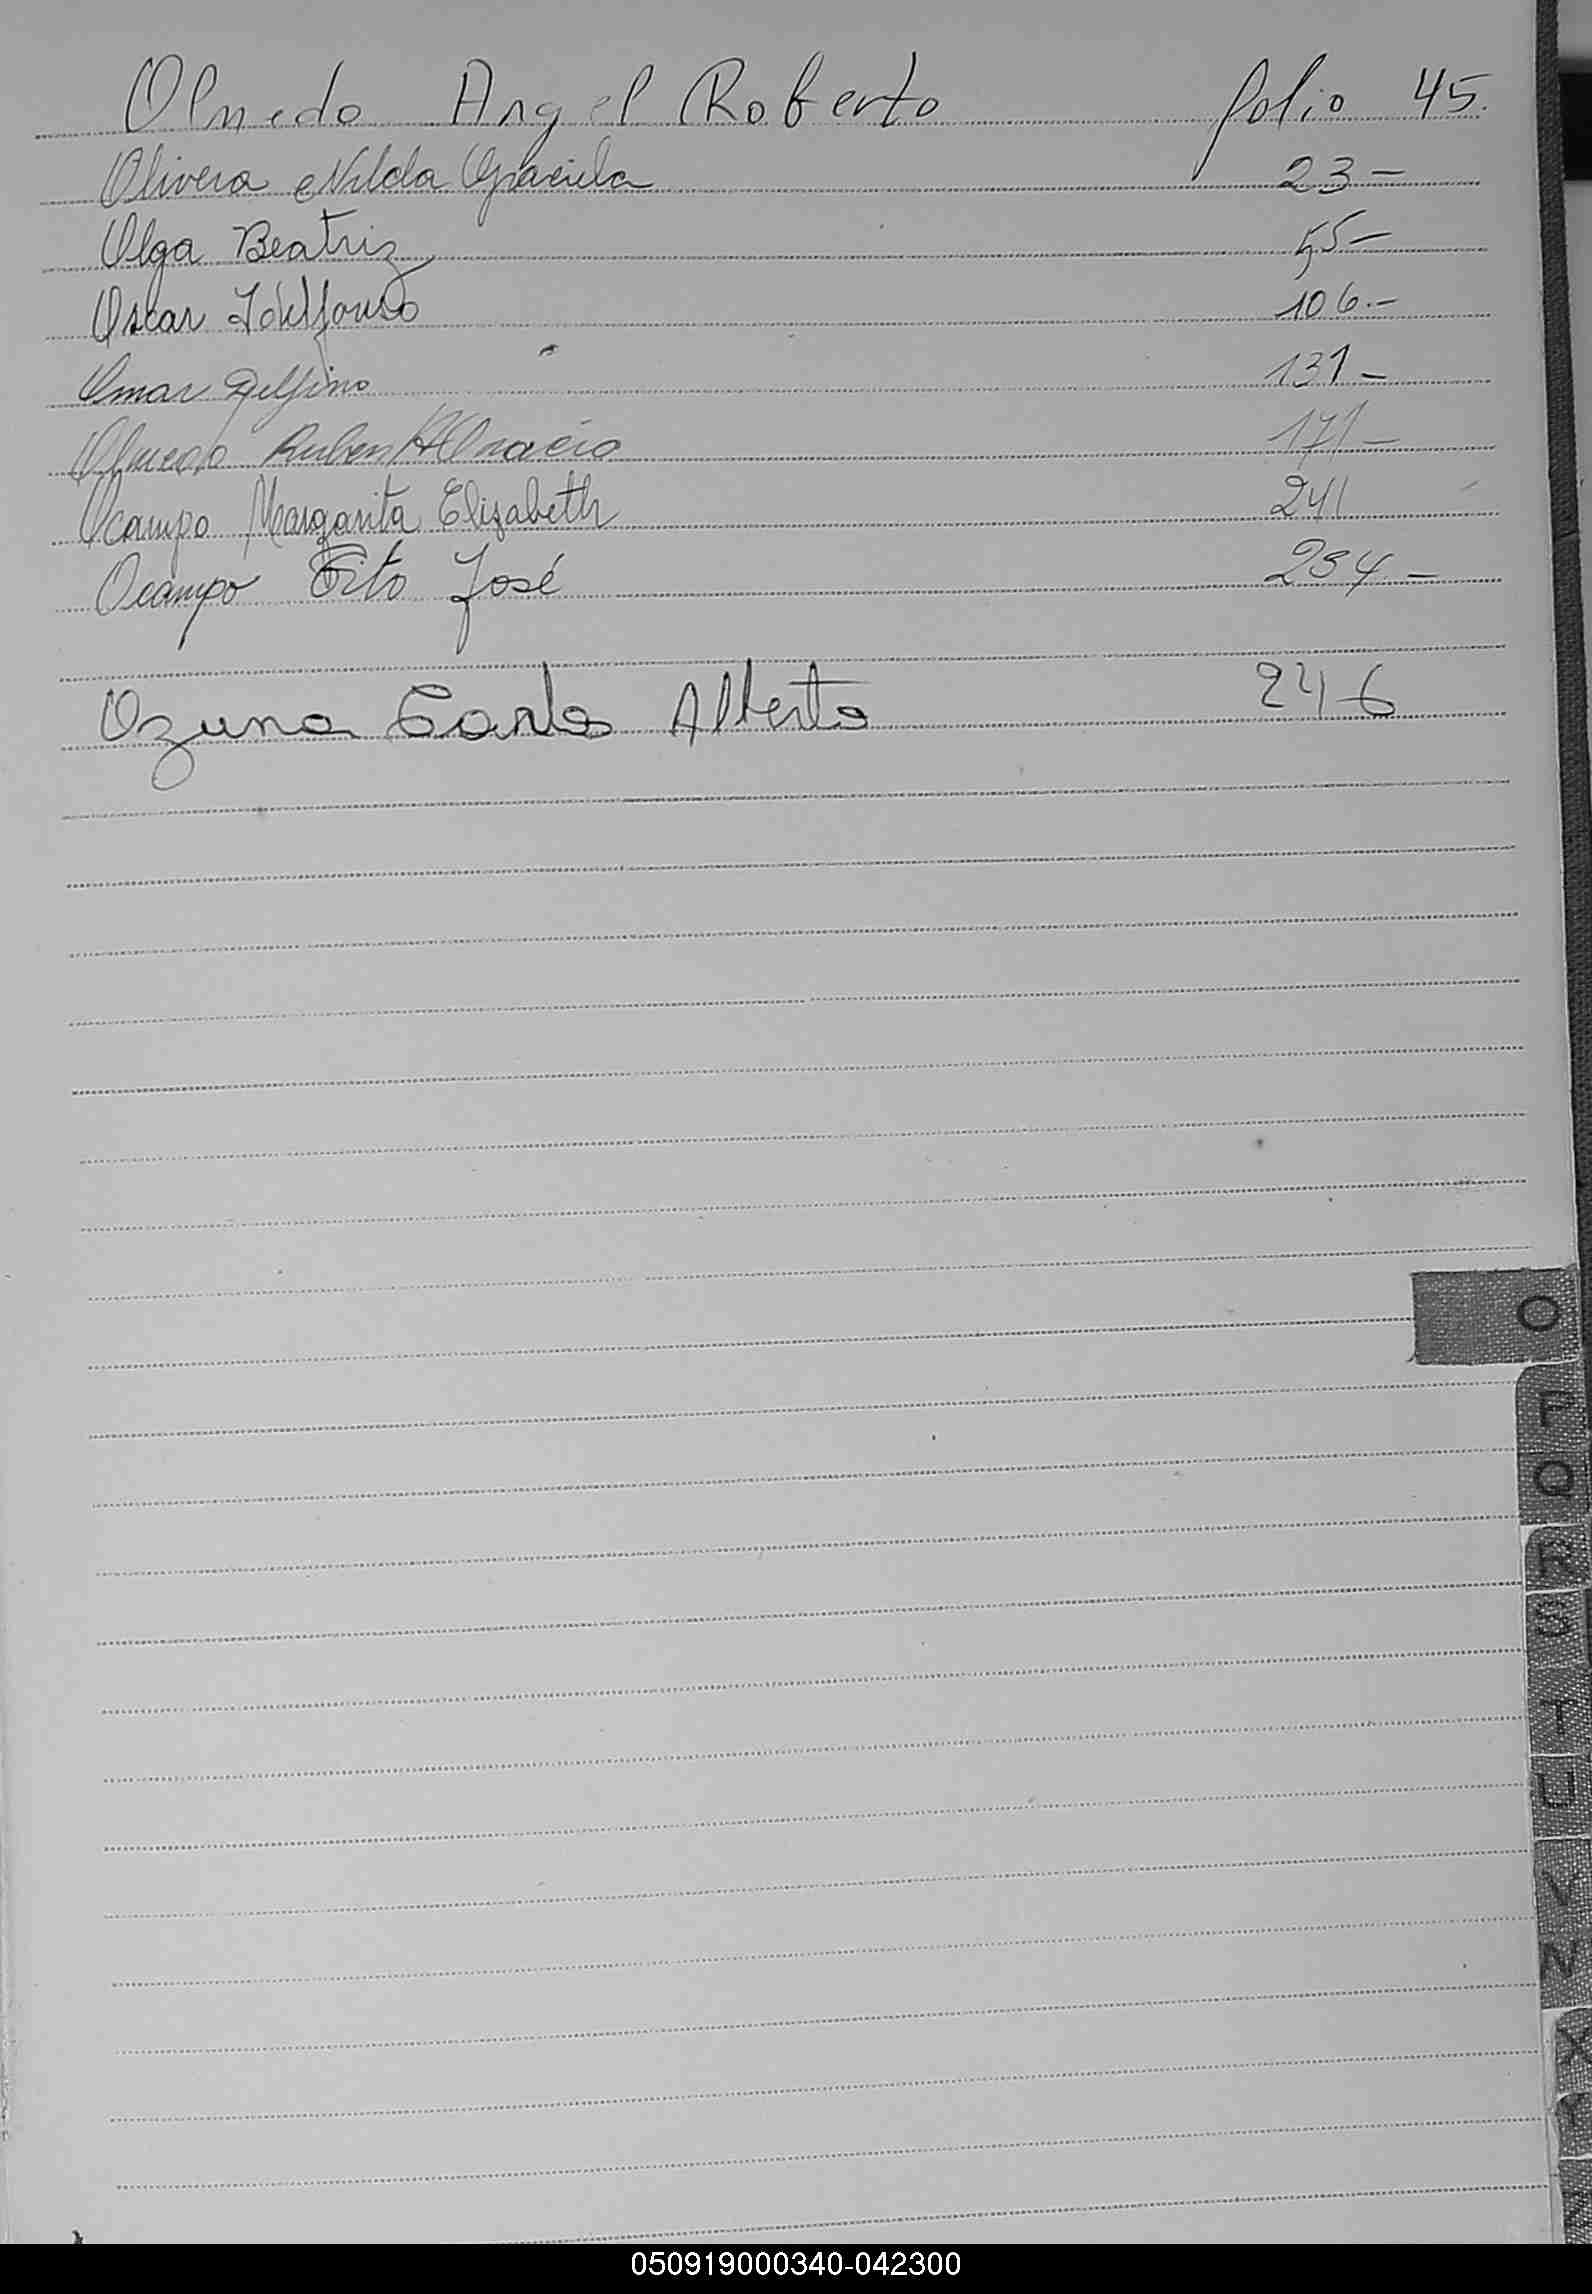 Olmedo Angel Roberto folio 45.
Olivera Nilda Graciela 23-
Olga Beatriz 55-
Oscar Idelfonso 106.-
Omar Delfino 131-
Olmedo Ruben Horacio 171-
Ocampo Margarita Elizabeth 241
Ocampo Tito José 234-
Ozuna Carlos Alberto 246
O
P
Q
R
S
T
U
V
X
050919000340-042300